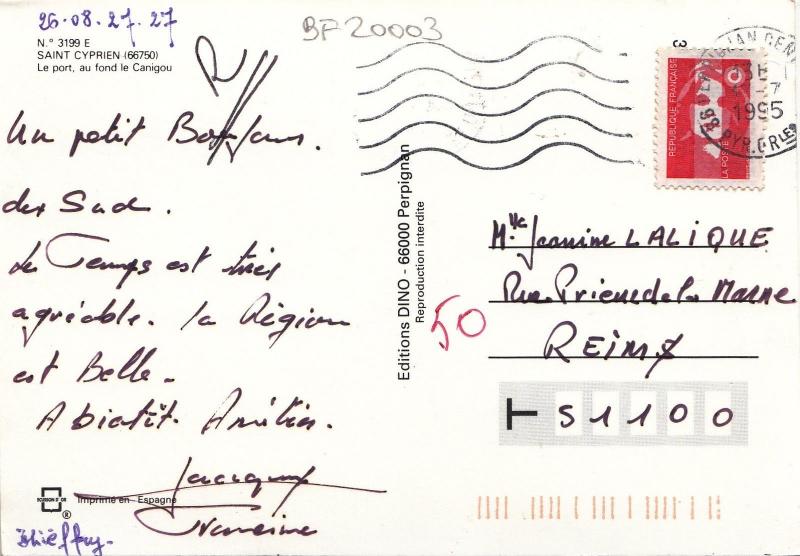 26.08.27.27
BF20003
N.° 3199 E
SAINT CYPRIEN (66750)
Le port, au fond le Canigou
R
3
Un petit Bonjour
du Sud.
le Temps est très
agréable. la Région
est Belle.
A bientôt. Amitiés.
Imprimé en Espagne
®
Editions DINO - 66000 Perpignan
Reproduction interdite
50
RÉPUBLIQUE FRANÇAISE
LA POSTE
1995
66 PYR.ORLES
Mlle Jeanine LALIQUE
Rue Prieur de la Marne
REIMS
T 51100